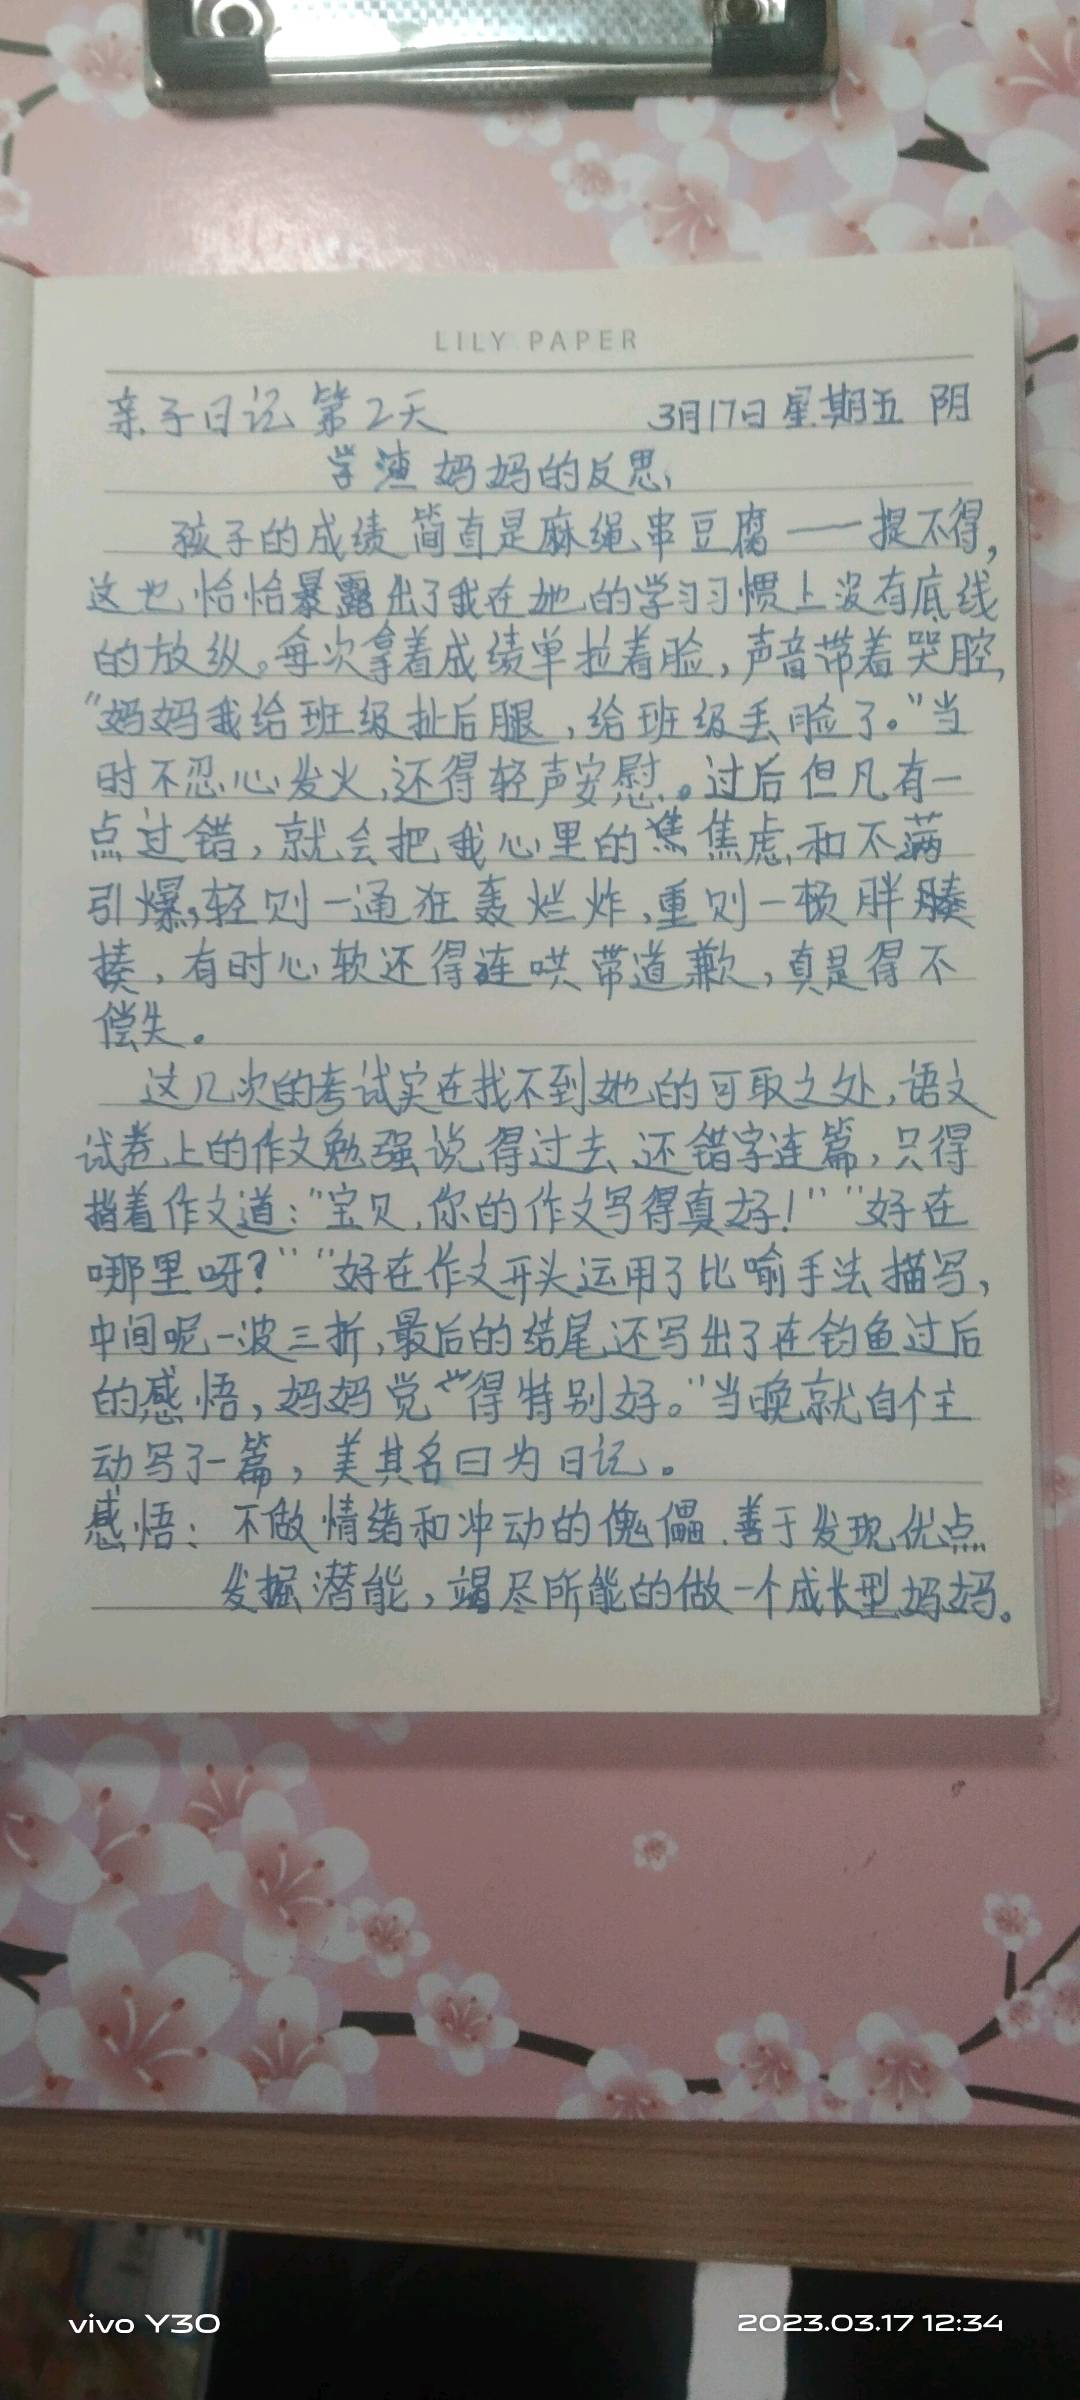 LILY PAPER
亲子日记 第2天 3月17日 星期五 阴
学渣妈妈的反思
孩子的成绩简直是麻绳串豆腐——提不得,
这也恰恰暴露出了我在她的学习习惯上没有底线
的放纵。每次拿着成绩单拉着脸,声音带着哭腔
"妈妈我给班级扯后腿,给班级丢脸了。"当
时不忍心发火,还得轻声安慰。过后但凡有一
点过错,就会把我心里的焦虑和不满
引爆,轻则一通狂轰烂炸,重则一顿胖
揍,有时心软还得连哄带道歉,真是得不
偿失。
这几次的考试实在找不到她的可取之处,语文
试卷上的作文勉强说得过去,还错字连篇,只得
指着作文道:"宝贝,你的作文写得真好!" "好在
哪里呀?" "好在作文开头运用了比喻手法描写,
中间呢一波三折,最后的结尾还写出了在钓鱼过后
的感悟,妈妈觉得特别好。"当晚就自个主
动写了一篇,美其名曰为日记。
感悟:不做情绪和冲动的傀儡.善于发现优点
发掘潜能,竭尽所能的做一个成长型妈妈。
vivo Y30
2023.03.17 12:34